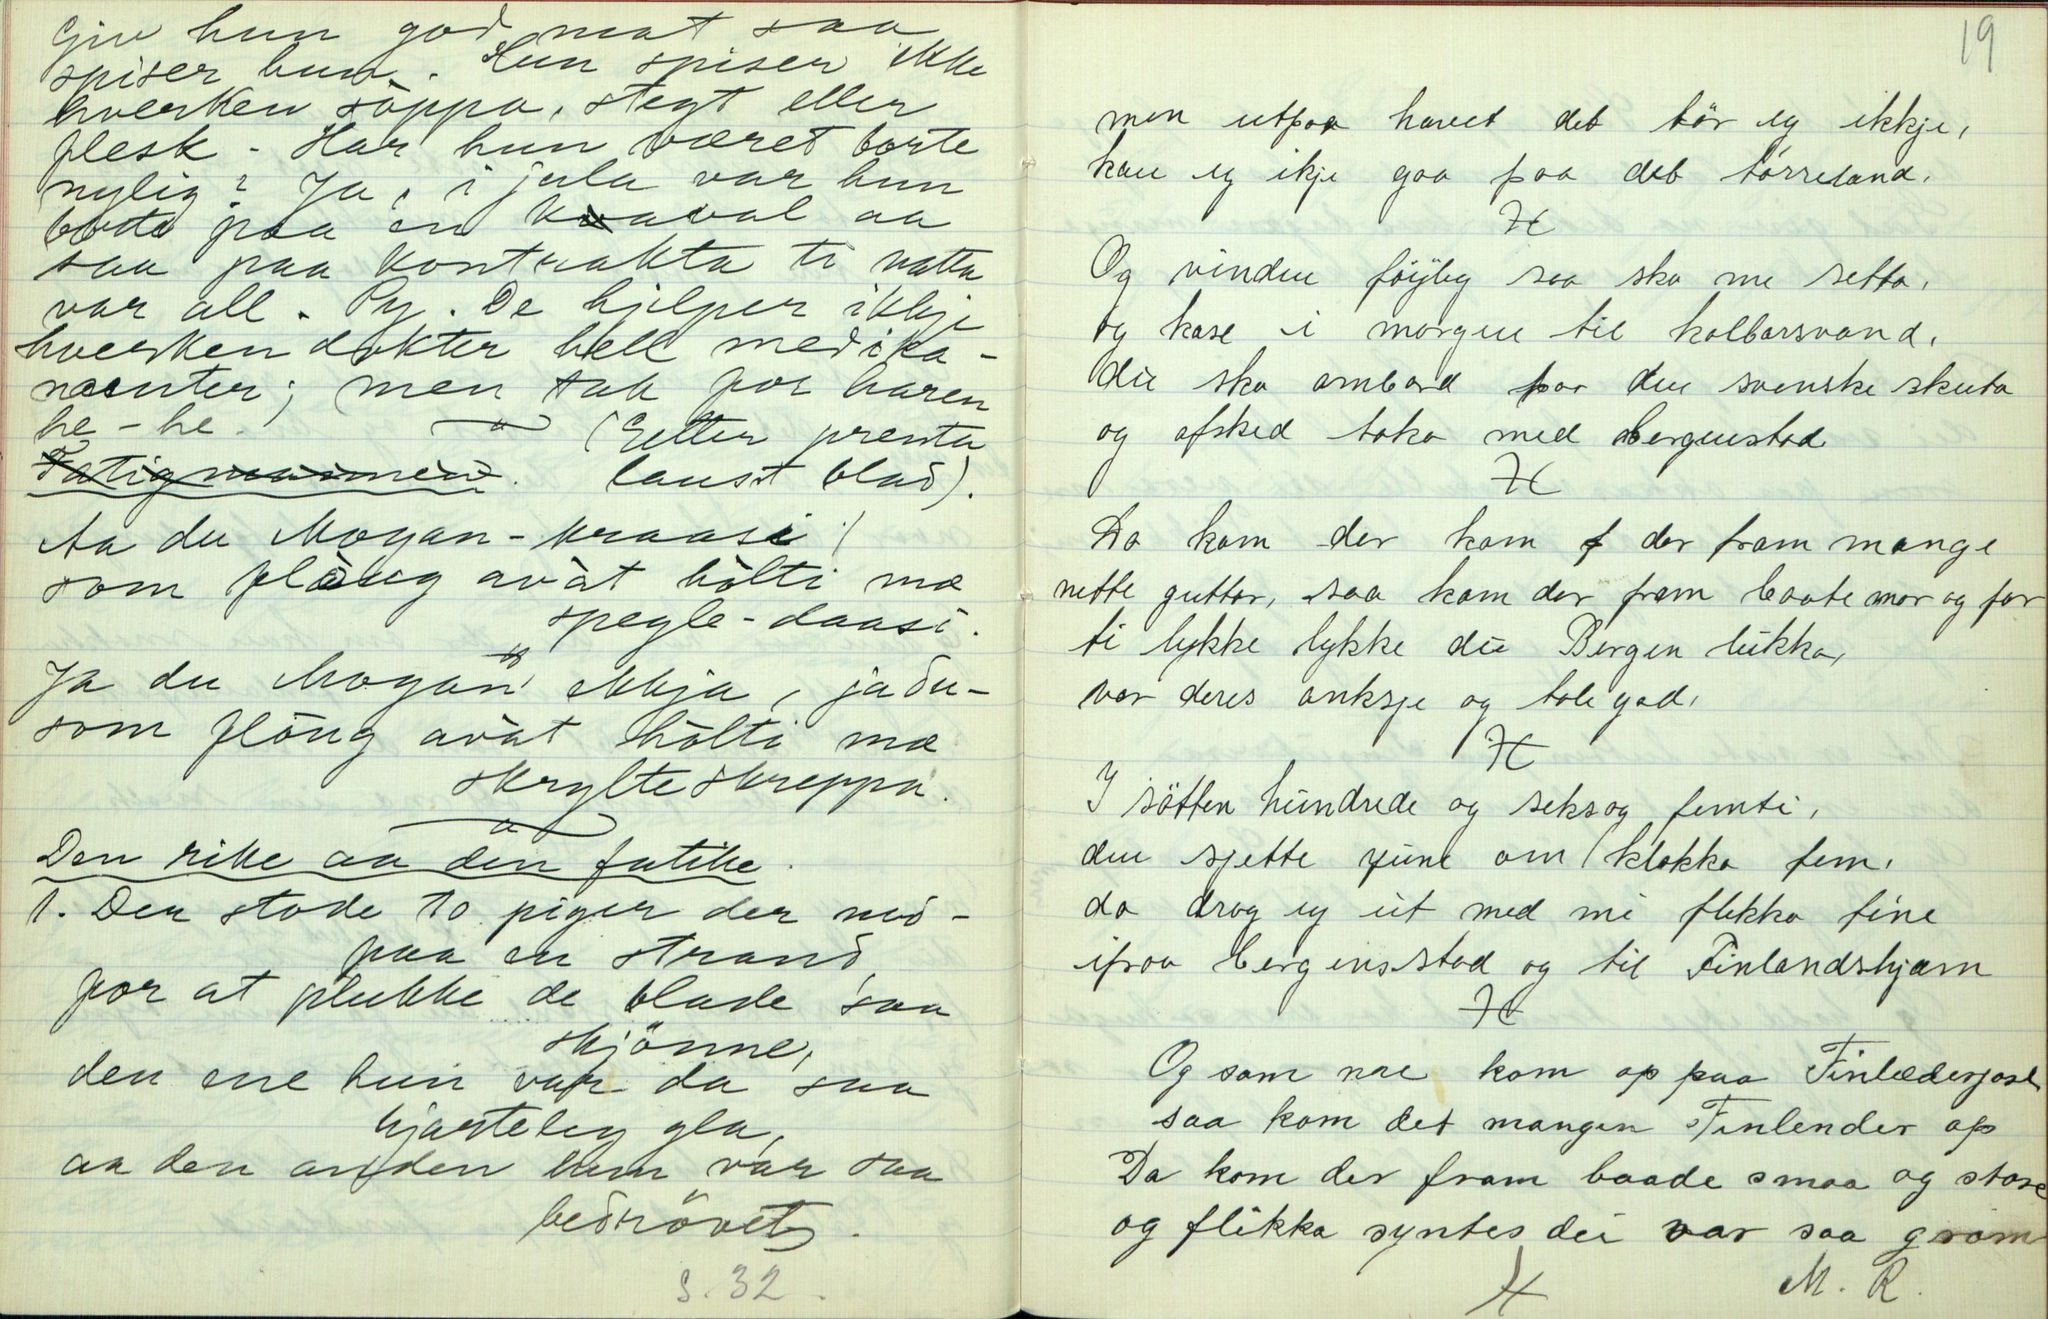 Giv hun god mat saa
spiser hun. Hun spiser ikke
hverken söppa, stegt eller
flesk - Har hun været borte
nylig? Ja, i jula var hun
borte paa en kvaval aa
saa paa kontrakta ti natta
var all. Py. De hjelper ikkje
hverken dokter hell medika-
menter; men tak for haren
he-he.
(Etter prenta
laust blad).
Fatigmannen.
Aa du Mogan-kraasi!
som flàug avàt hòlti mæ
spegle-daasi.
Ja du Mogan ikkja, ja du-
som flòug avàt hòlti mæ
skrylteskreppa.
Den rike aa den fatike.
1. Der stode to piger der ned-
paa en strand
for at plukke de blade saa
skjönne,
den ene hun var da saa
hjarteleg gla,
aa den anden hun var saa
bedrövet.
S. 32.
19
men utpaa havet det tör eg ikkje,
kan eg ikje gaa paa det törreland.
Og vinden föijleg saa ska me setta,
og kase i morgen til kalbarsvand,
dii ska ombord paa den svenske skuta
og afsked taka med Bergenstad
Da kom der kom f der fram mange
nette guttar, saa kom der fram baate mor og far
ti lykke lykke dii Bergen likka,
var deres anksje og tole god,
I sötten hundrede og seksog femti,
den sjette june om klokka fem,
da drog eg ut med mi flikka fine
ifraa Bergensstad og til Finlandshjæm
Og som me kom op paa Finlæderjorl
saa kom det mangen Finlender op
Da kom der fram baade smaa og store
og flikka syntes dei var saa gram
M. R.